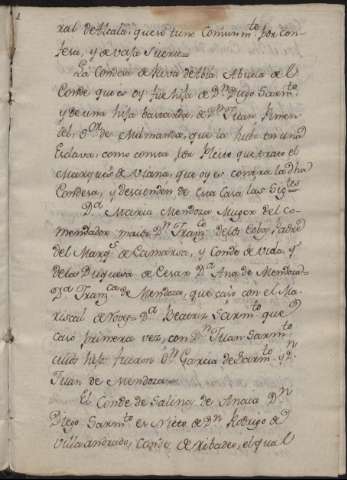 ral de Alcala, que se tuvo Comunmte por con
fesa, y de vaso Sueríe
La Condesa de Riva de Via Abuela del
Conde que es oy fue hija de Dn Diego Sarmto
y de una hija bastarda, de Dn Juan Pimen
tel, Sor de Milmanda, que la hubo en una
Esclava, como consta por Pleito que trató el
Marques de Viana, que oy es contra la dha
Condesa, y descienden de esta Casa las Sigtes
Da Maria Mendoza Muger del Co
mendador maior Dn Franco de los Cobos Padre
del Marqs de Camarasa, y Conde de Vida y
de la Duquesa de Cesar Da Ana de Mendoza
Da Franca de Mendoza, que casó con el Ma
riscal de Da Beatriz Sarmto que
caso primera vez, con Dn Juan Sarmto
cuios hijos fueron Dn Garcia de Sarmto y Dn
Juan de Mendoza
El Conde de Salinas de Anaia Dn
Diego Sarmto es Nieto de Dn Rodrigo de
Villa andrado, Conde de Ribadeo, el qual